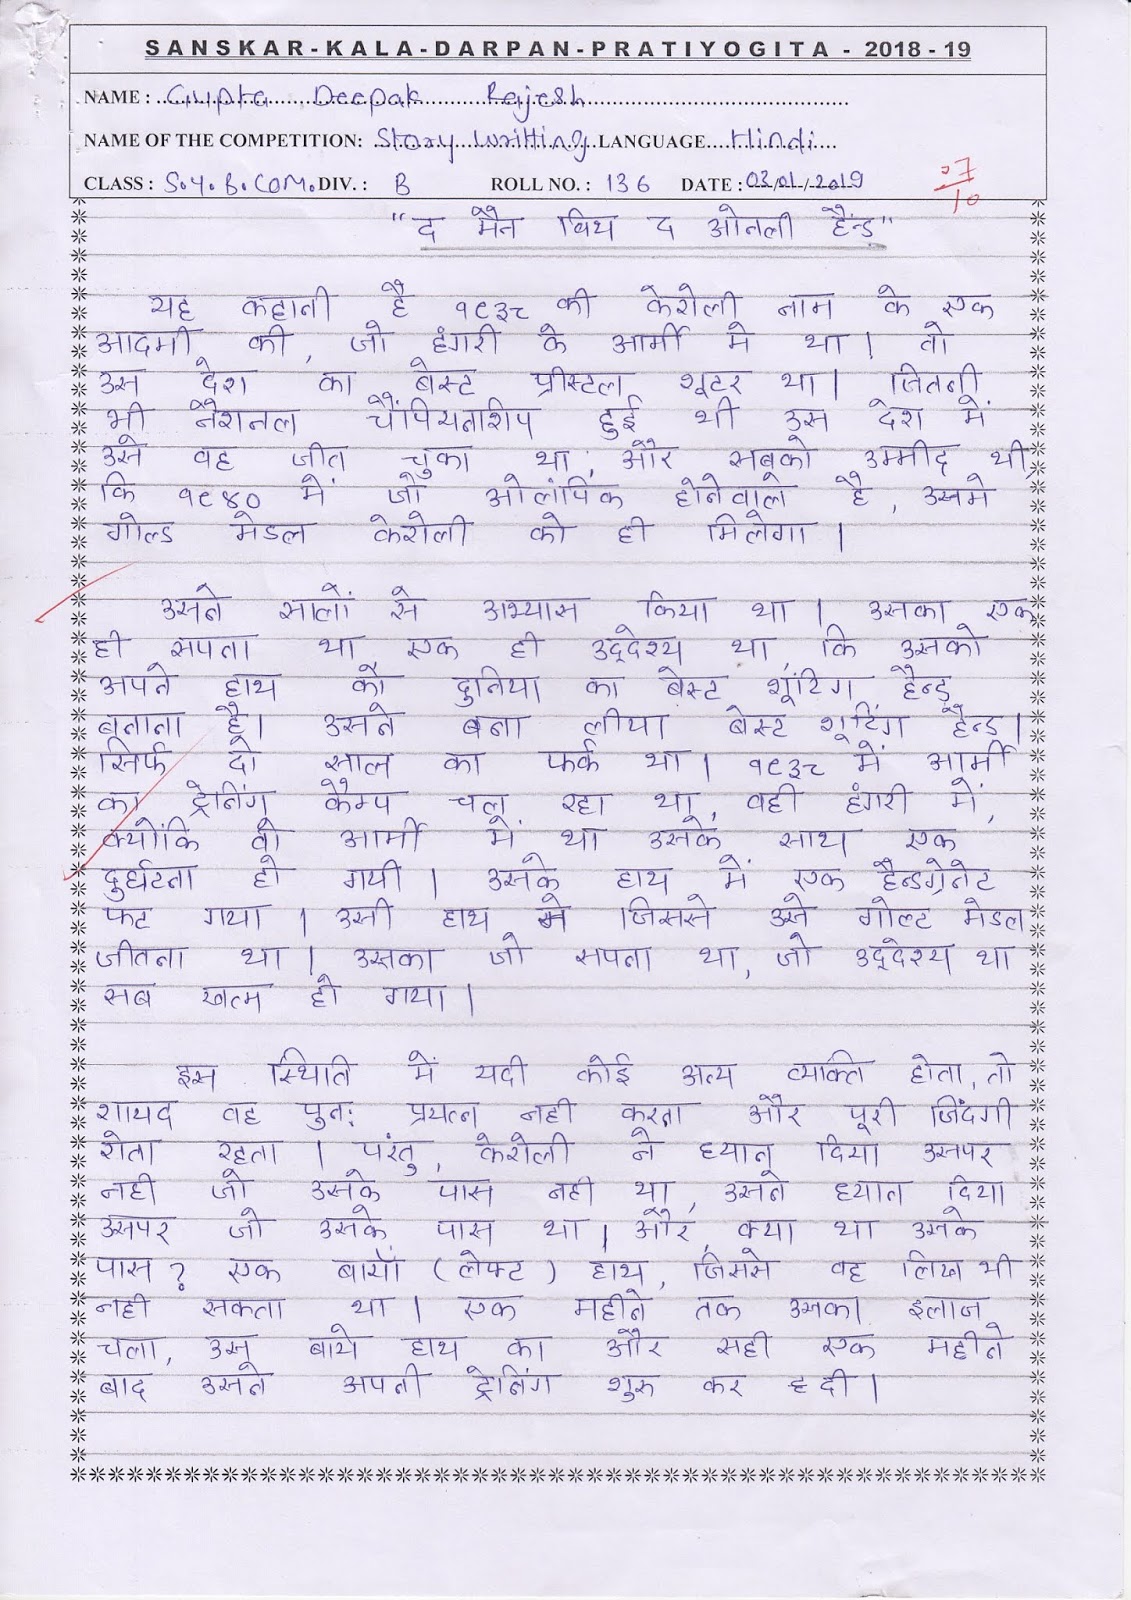 SANSKAR-KALA-DARPAN-PRATIYOGITA - 2018-19
NAME : Gupta Deepak Rajesh
NAME OF THE COMPETITION: Story Writting LANGUAGE Hindi
CLASS : S.Y.B.COM. DIV. : B ROLL NO. : 136 DATE : 03/01/2019
07/10
"द मैन विथ द ओनली हैन्ड"
यह कहानी है १९३८ की केरोली नाम के एक
आदमी की, जो हंगरी के आर्मी मे था। तो
उस देश का बेस्ट प्रीस्टल शूटर था। जितनी
भी नैशनल चैंपियनशिप हुई थी उस देश में
उसे वह जीत चुका था, और सबको उम्मीद थी,
कि १९४० में जो ओलंपिक होनेवाले है, उसमे
गोल्ड मेडल केरोली को ही मिलेगा।
उसने सालों से अभ्यास किया था। उसका एक
ही सपना था एक ही उद्देश्य था, कि उसको
अपने हाथ को दुनिया का बेस्ट शूटिंग हैन्ड
बनाना है। उसने बना लीया बेस्ट शूटिंग हैन्ड।
सिर्फ दो साल का फर्क था। १९३८ में आर्मी
का ट्रेनिंग कैम्प चल रहा था, वही हंगरी में,
क्योंकि वो आर्मी में था उसके साथ एक
दुर्घटना हो गयी। उसके हाथ में एक हैन्डग्रेनेट
फट गया। उसी हाथ मे जिससे उसे गोल्ट मेडल
जीतना था। उसका जो सपना था, जो उद्देश्य था
सब खत्म हो गया।
इस स्थिति में यदी कोई अन्य व्यक्ति होता, तो
शायद वह पुनः प्रयत्न नही करता और पूरी जिंदगी
रोता रहता। परंतु, केरोली ने ध्यान दिया उसपर
नही जो उसके पास नही था, उसने ध्यान दिया
उसपर जो उसके पास था। और, क्या था उसके
पास? एक बायाँ (लेफ्ट) हाथ, जिससे वह लिख भी
नही सकता था। एक महीने तक उसका इलाज
चला, उस बाये हाथ का और सही एक महीने
बाद उसने अपनी ट्रेनिंग शुरु कर दी।